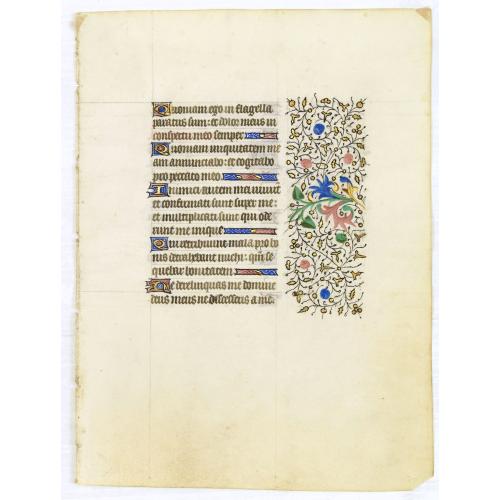 Quoniam ego in flagella
paratus sum: et dolor meus in
conspectu meo semper
Quoniam iniquitatem me
am annunciabo: et cogitabo
pro peccato meo
Inimici autem mei vivunt
et confirmati sunt super me:
et multiplicati sunt qui ode
runt me inique
Qui retribuunt mala pro bo
nis detrahebant michi: qm̄ se
quebar bonitatem
Ne derelinquas me domine
deus meus ne discesseris a me.